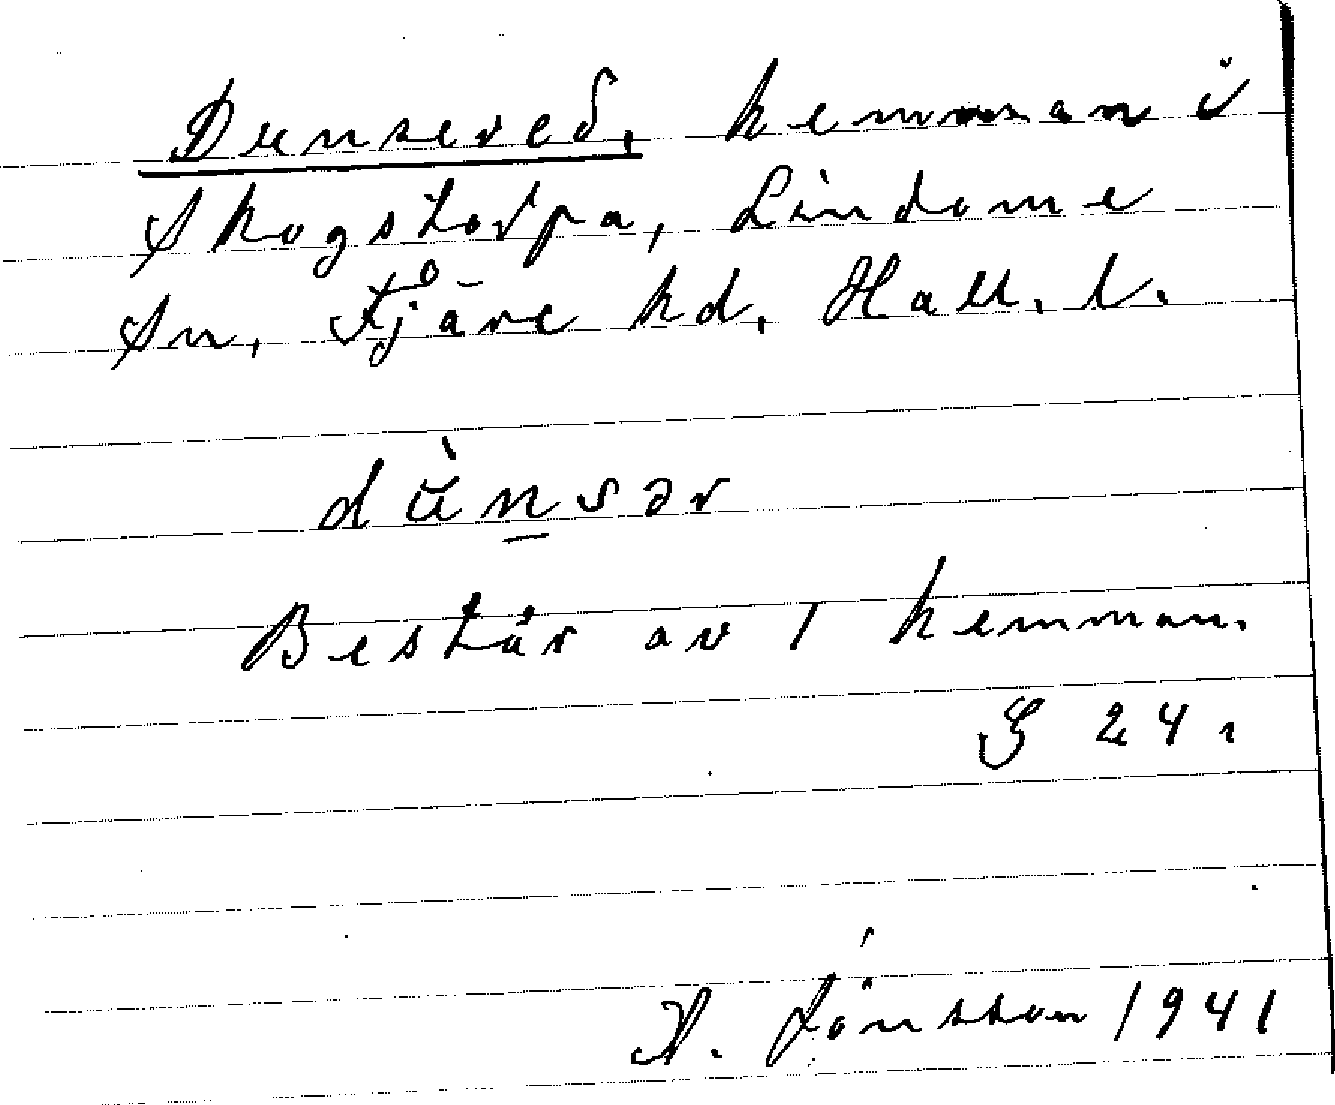 Dunsered, hemman i
Skogstorpa, Lindome
sn, Fjäre hd, Hall. l.
dùnsər
Består av 1 hemman.
§ 24.
A. Jónsson 1941